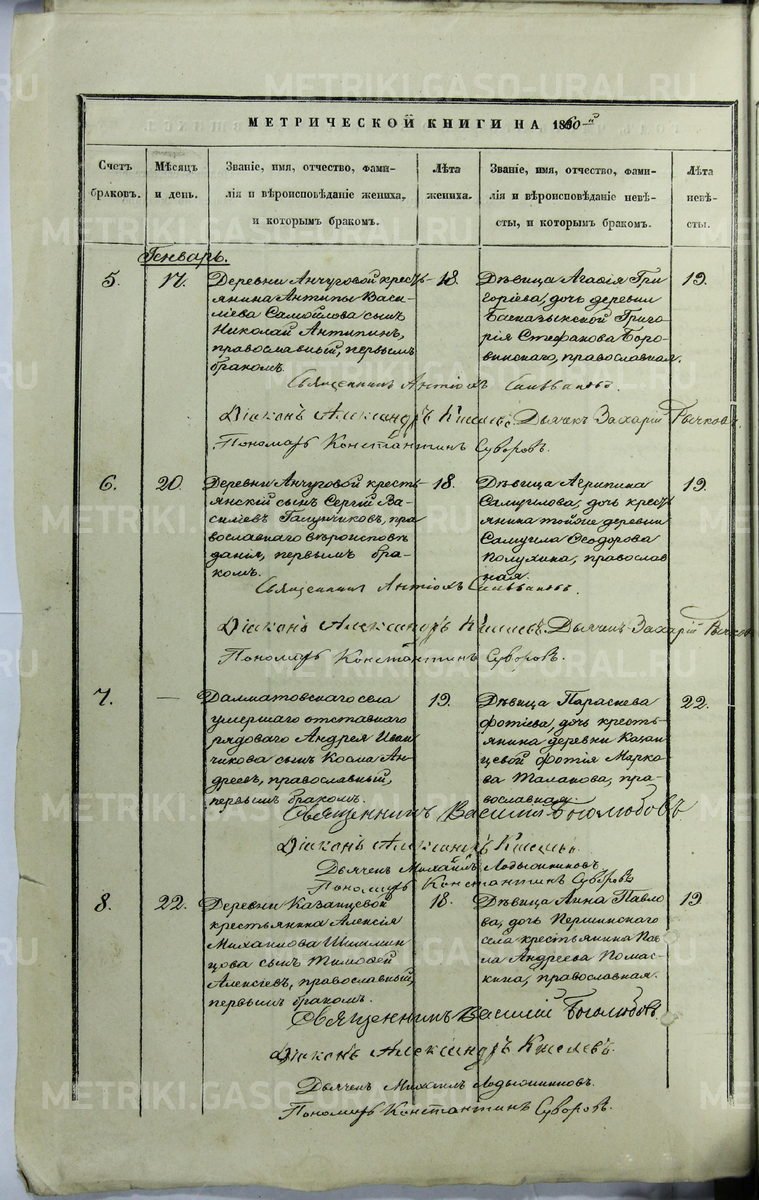 МЕТРИЧЕСКОЙ КНИГИ НА 1860-й
Счетъ браковъ.
Мѣсяцъ и день.
Званіе, имя, отчество, фами-
лія и вѣроисповѣданіе жениха,
и которымъ бракомъ.
Лѣта жениха.
Званіе, имя, отчество, фами-
лія и вѣроисповѣданіе невѣ-
сты, и которымъ бракомъ.
Лѣта невѣ-
сты.
Генварь.
5.
17.
Деревни Анчуговой крес-
тьянина Антипы Васи-
ліева Самойлова сынъ
Николай Антипинъ,
православный, первымъ
бракомъ.
18.
Дѣвица Агафія Гри-
горіева, дочь деревни
Григо-
рія Стефанова Боро-
винскаго, православная.
19.
Священникъ Антіохъ
Діаконъ Александръ Киселевъ. Дьячекъ Захарій Бычковъ.
Пономарь Константинъ Суворовъ.
6.
20.
Деревни Анчуговой кресть-
янскій сынъ Сергій Ва-
силіевъ пра-
вославнаго вѣроисповѣ-
данія, первымъ бра-
комъ.
18.
Дѣвица Агрипина
Самуилова, дочь крес-
тьянина тойже деревни
Самуила Ѳеодорова
Полухина, православ-
ная.
19.
Священникъ Антіохъ
Діаконъ Александръ Киселевъ. Дьячекъ Захарій Бычковъ
Пономарь Константинъ Суворовъ.
7.
—
Далматовскаго села
умершаго отставнаго
рядоваго Андрея Иван-
чикова сынъ Косма Ан-
дреевъ, православный,
первымъ бракомъ.
19.
Дѣвица Параскева
Фотіева, дочь кресть-
янина деревни Казан-
цевой Фотія Марко-
ва Таланова, пра-
вославная
22.
Священникъ Василій Боголюбовъ
Діаконъ Александръ Киселевъ
Дьячекъ Михаилъ
Пономарь Константинъ Суворовъ
8.
22.
Деревни Казанцевой
крестьянина Алексія
Михаилова Шимшин-
цова сынъ Тимофей
Алексіевъ, православный,
первымъ бракомъ.
18.
Дѣвица Анна Павло-
ва, дочь Першинскаго
села крестьянина Пав-
ла Андреева Помас-
кина, православная.
19.
Священникъ Василій Боголюбовъ
Діаконъ Александръ Киселевъ.
Дьячекъ Михаилъ
Пономарь Константинъ Суворовъ.
METRIKI.GASO-URAL.RU